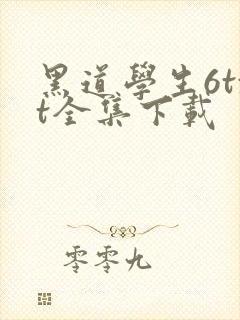 黑道學生6tx
t全集下載
零零九